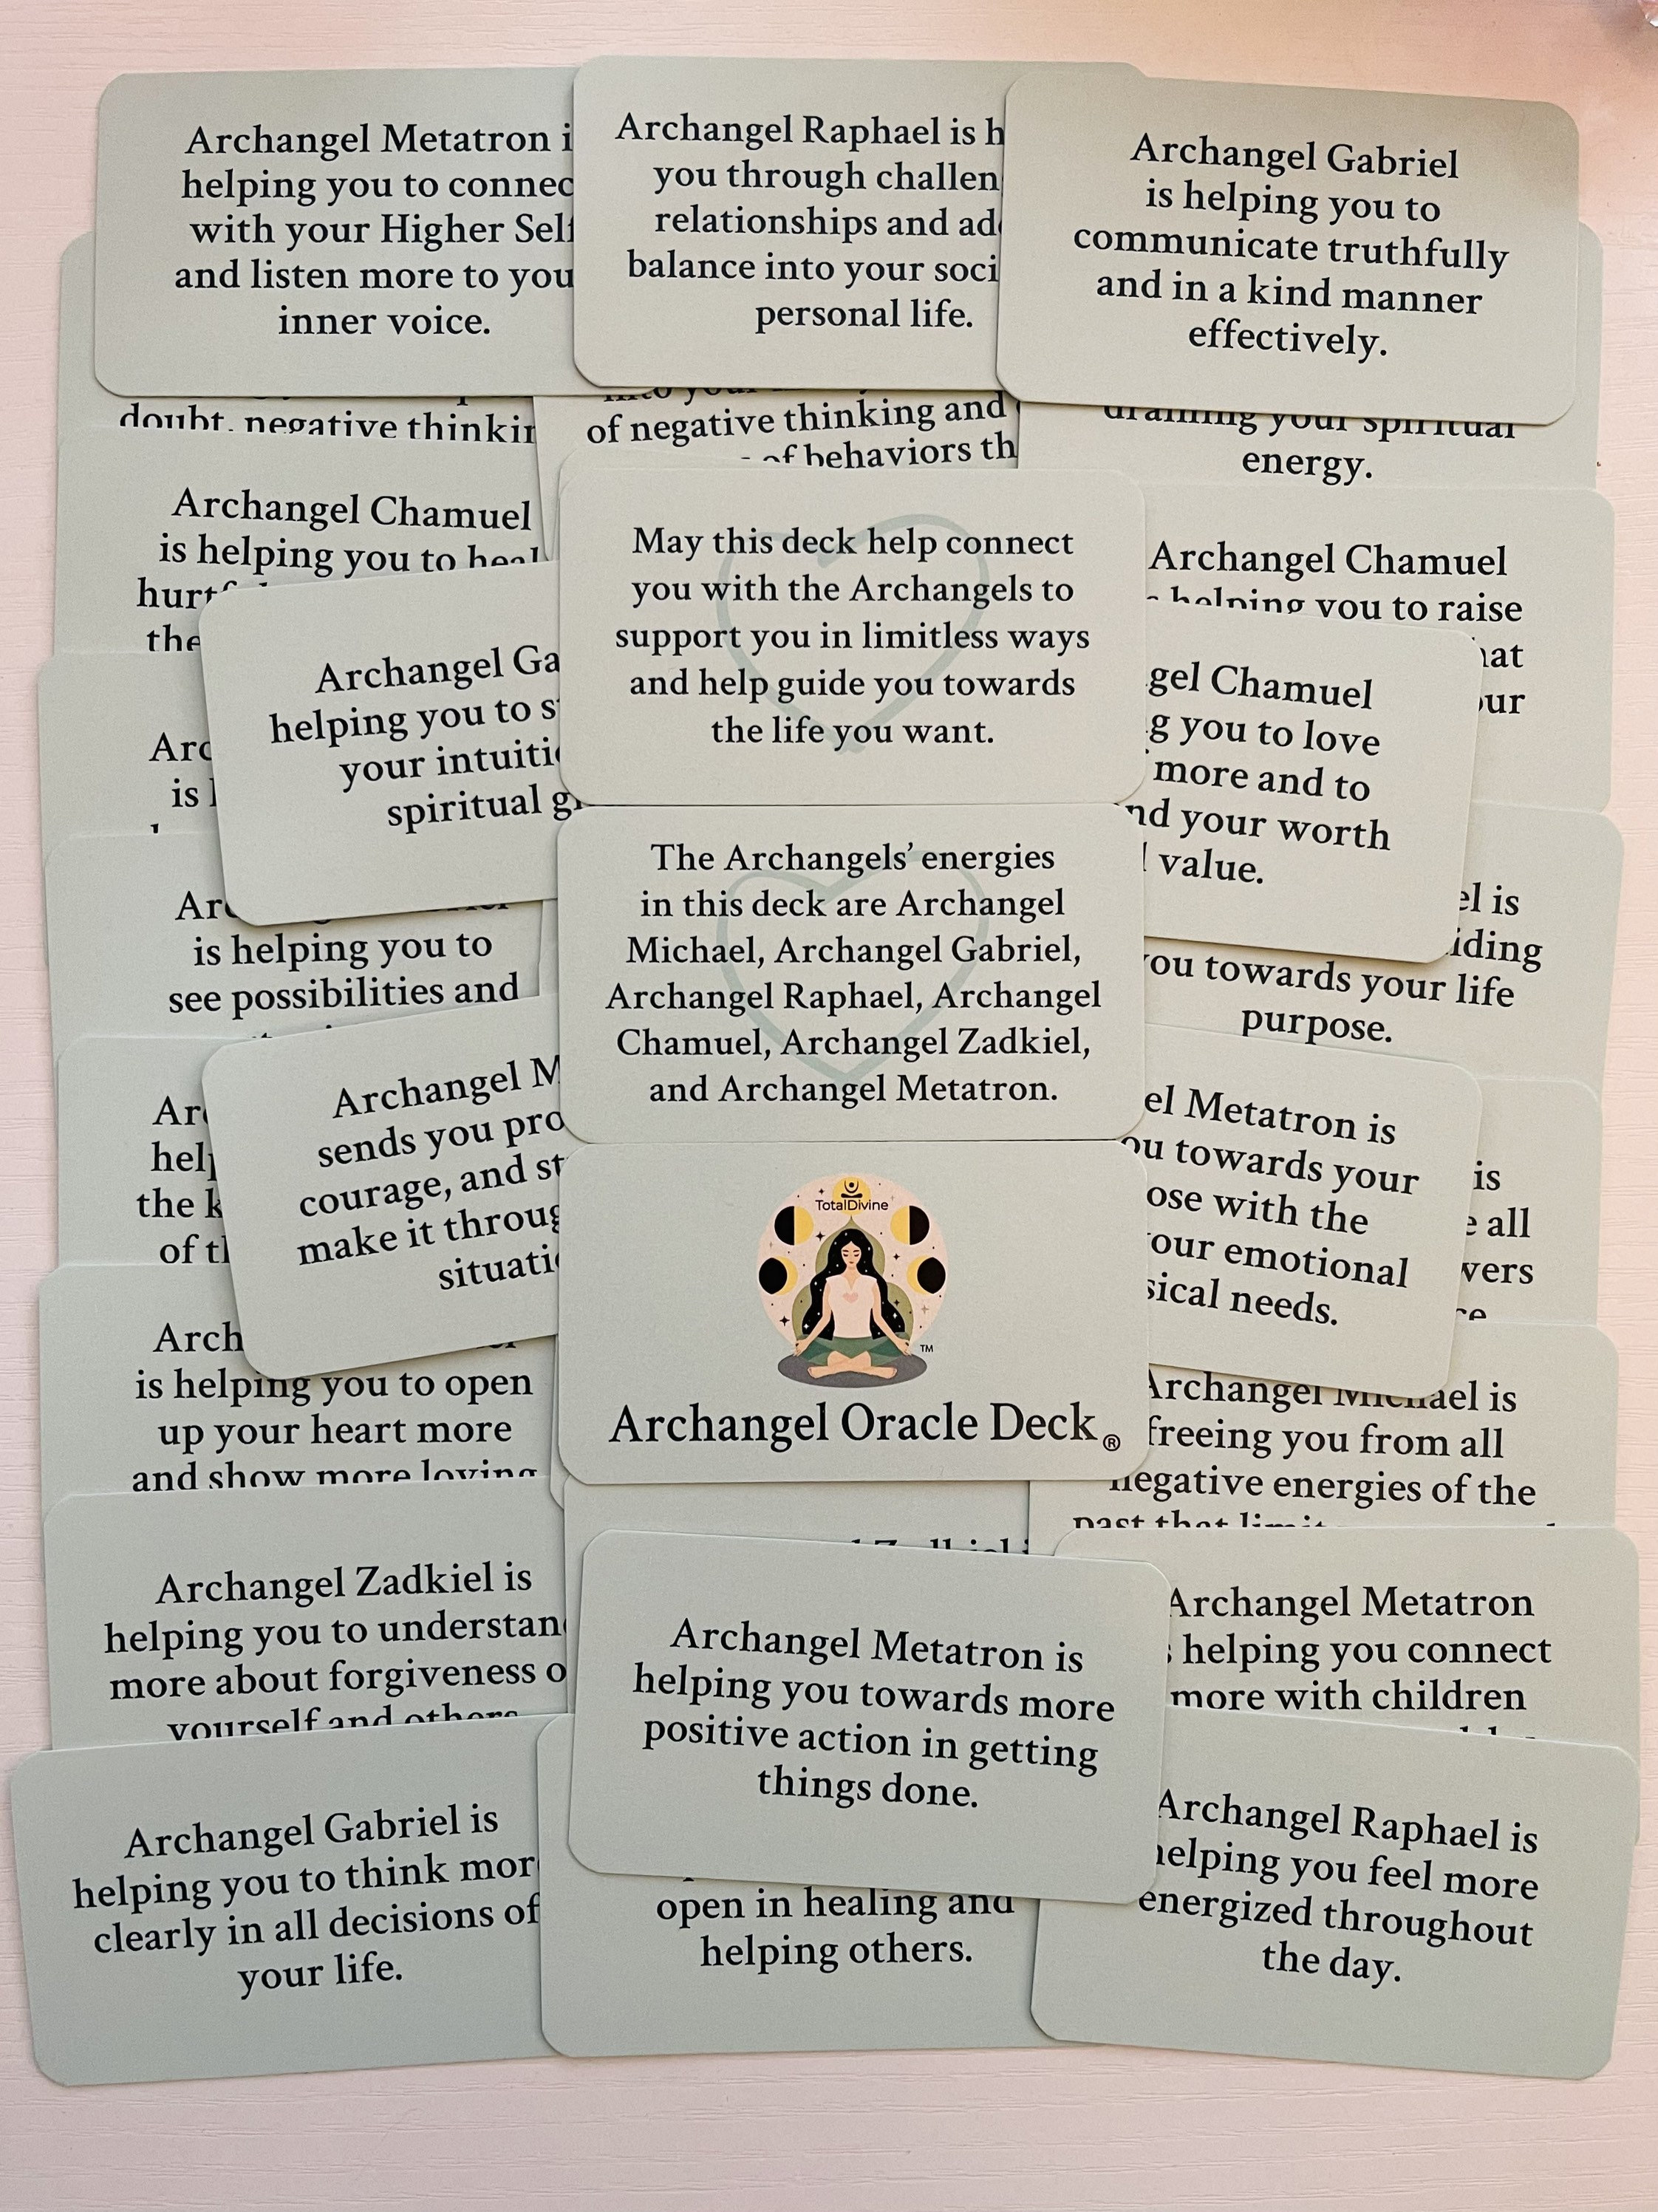 Archangel Metatron
helping you to connec
with your Higher Self
and listen more to you
inner voice.
Archangel Raphael is h
you through challen
relationships and ad
balance into your soci
personal life.
Archangel Gabriel
is helping you to
communicate truthfully
and in a kind manner
effectively.
doubt, negative thinkin
of negative thinking and
of behaviors th
draining your spiritual
energy.
Archangel Chamuel
is helping you to heal
the
May this deck help connect
you with the Archangels to
support you in limitless ways
and help guide you towards
the life you want.
Archangel Chamuel
helping you to raise
hat
our
Archangel Ga
helping you to s
your intuiti
spiritual g
gel Chamuel
g you to love
more and to
nd your worth
value.
Arc
is
The Archangels' energies
in this deck are Archangel
Michael, Archangel Gabriel,
Archangel Raphael, Archangel
Chamuel, Archangel Zadkiel,
and Archangel Metatron.
is helping you to
see possibilities and
el is
iding
you towards your life
purpose.
Archangel M
sends you pro
courage, and st
make it throug
situati
Ar
help
the k
of t
el Metatron is
ou towards your
ose with the
our emotional
sical needs.
is
all
vers
re
TotalDivine
TM
Archangel Oracle Deck®
Arch
is helping you to open
up your heart more
and show more loving
Archangel Michael is
freeing you from all
negative energies of the
past that
Archangel Zadkiel is
helping you to understan
more about forgiveness o
yourself and others
Zadkiel
Archangel Metatron is
helping you towards more
positive action in getting
things done.
Archangel Metatron
helping you connect
more with children
Archangel Gabriel is
helping you to think mor
clearly in all decisions of
your life.
open in healing and
helping others.
Archangel Raphael is
helping you feel more
energized throughout
the day.